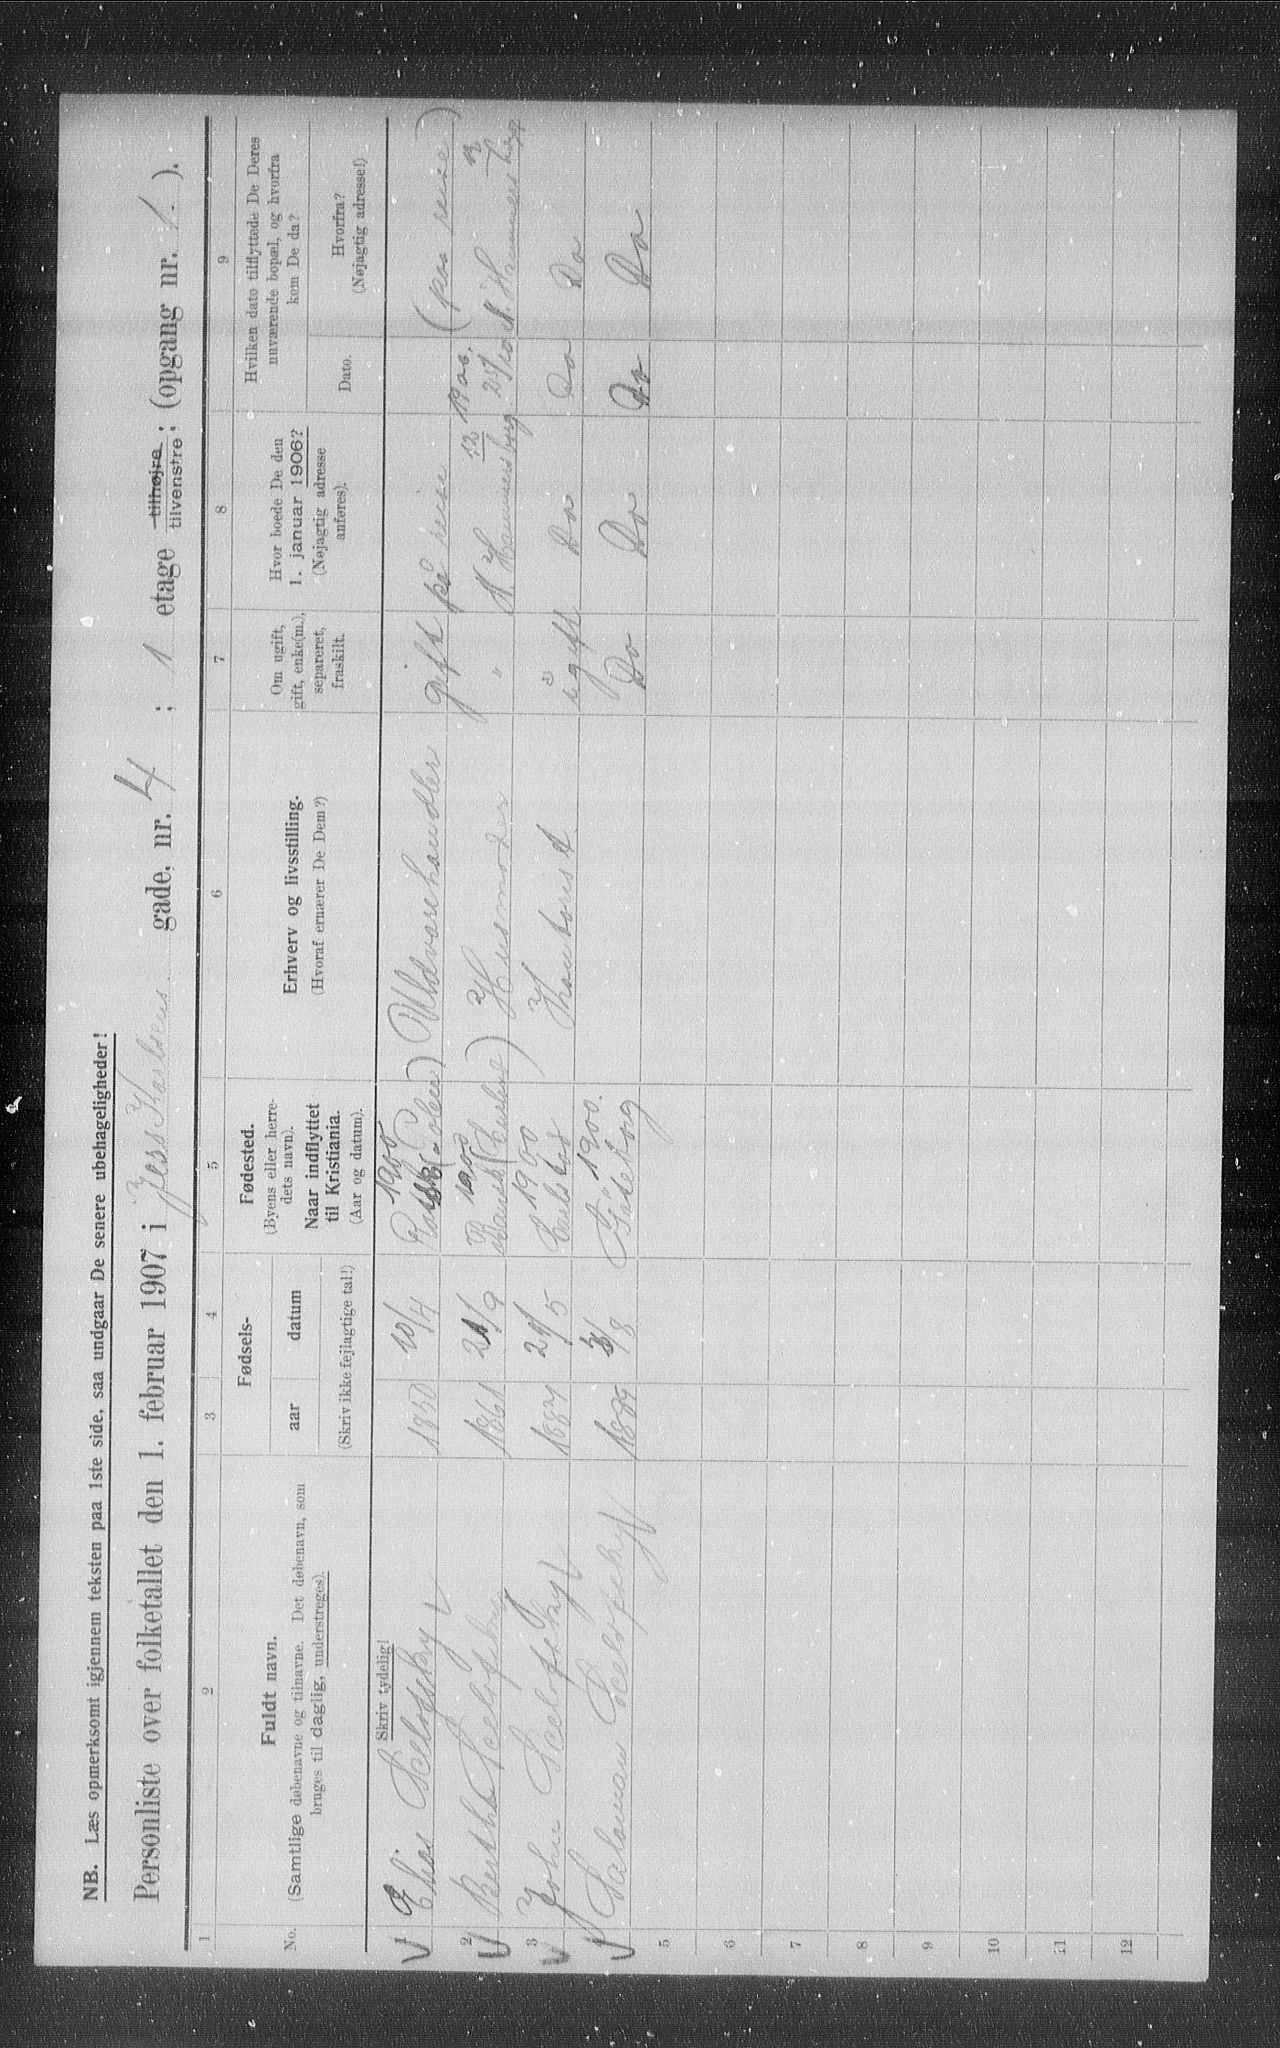 NB. Læs opmerksomt igjennem teksten paa 1ste side, saa undgaar De senere ubehageligheder!
Personliste over folketallet den 1. februar 1907 i Jess Karlsens gade, nr. 4 ; 1 etage tilhøjre tilvenstre; (opgang nr. 1.).
1 2 3 4 5 6 7 8 9
No.
Fuldt navn.
(Samtlige døbenavne og tilnavne. Det døbenavn, som
bruges til daglig, understreges).
Fødsels-
aar datum
(Skriv ikke fejlagtige tal!)
Fødested.
(Byens eller herre-
dets navn).
Naar indflyttet
til Kristiania.
(Aar og datum).
Erhverv og livsstilling.
(Hvoraf ernærer De Dem?)
Om ugift,
gift, enke(m.),
separeret,
fraskilt.
Hvor boede De den
1. januar 1906?
(Nøjagtig adresse
anføres).
Hvilken dato tilflyttede De Deres
nuværende bopæl, og hvorfra
kom De da?
Dato.
Hvorfra?
(Nøjagtig adresse!)
Skriv tydelig!
1 Elias 1850 10/4 1900 (Polen) Uldvarehandler gift på reise (paa reise)
2 Bertha 1861 21/9 1900 Husmoder " N. Hammersborg 12 1900.
3 John 1887 21/5 1900 Kontorist ugift Do Do Do
Saloman 1889 3/8 1900. Göteborg Do Do Do Do
5
6
7
8
9
10
11
12